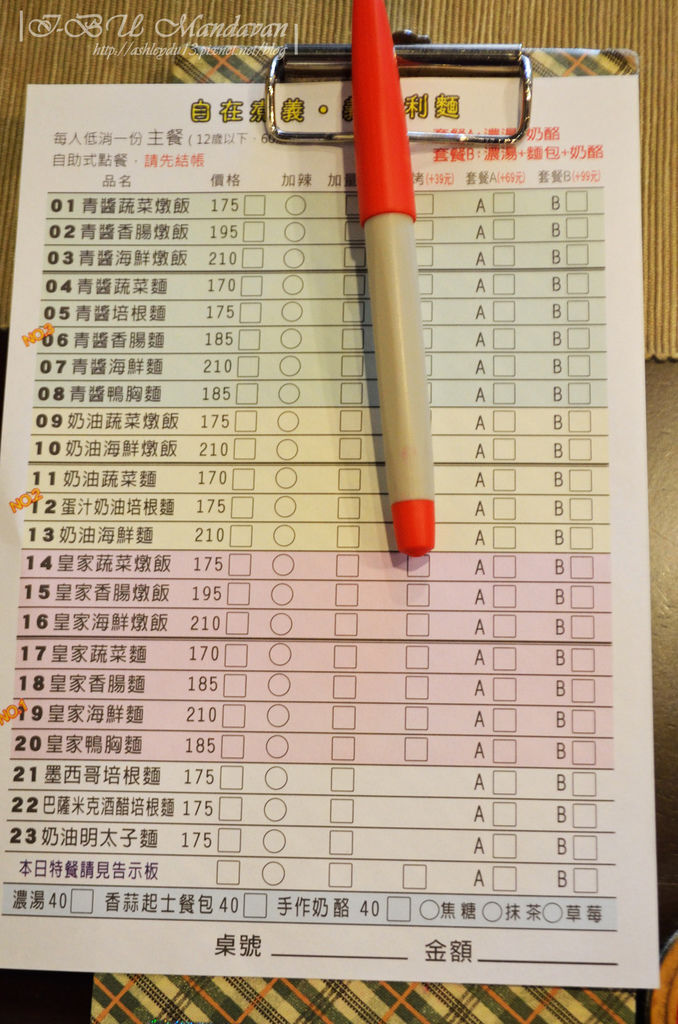 I-BU Mandavan
http://ashleydu13.pixnet.net/blog
自在 義・ 利麵
每人低消一份 主餐 (12歲以下
套餐A:濃湯 奶酪
自助式點餐，請先結帳
套餐B:濃湯+麵包+奶酪
品名 價格 加辣 加量 烤(+39元) 套餐A(+69元) 套餐B(+99元)
01 青醬蔬菜燉飯 175 A B
02 青醬香腸燉飯 195 A B
03 青醬海鮮燉飯 210 A B
04 青醬蔬菜麵 170 A B
05 青醬培根麵 175 A B
NO3 06 青醬香腸麵 185 A B
07 青醬海鮮麵 210 A B
08 青醬鴨胸麵 185 A B
09 奶油蔬菜燉飯 175 A B
10 奶油海鮮燉飯 210 A B
11 奶油蔬菜麵 170 A B
NO2 12 蛋汁奶油培根麵 175 A B
13 奶油海鮮麵 210 A B
14 皇家蔬菜燉飯 175 A B
15 皇家香腸燉飯 195 A B
16 皇家海鮮燉飯 210 A B
17 皇家蔬菜麵 170 A B
18 皇家香腸麵 185 A B
NO1 19 皇家海鮮麵 210 A B
20 皇家鴨胸麵 185 A B
21 墨西哥培根麵 175 A B
22 巴薩米克酒醋培根麵 175 A B
23 奶油明太子麵 175 A B
本日特餐請見告示板 A B
濃湯 40 香蒜起士餐包 40 手作奶酪 40 焦糖 抹茶 草莓
桌號 金額